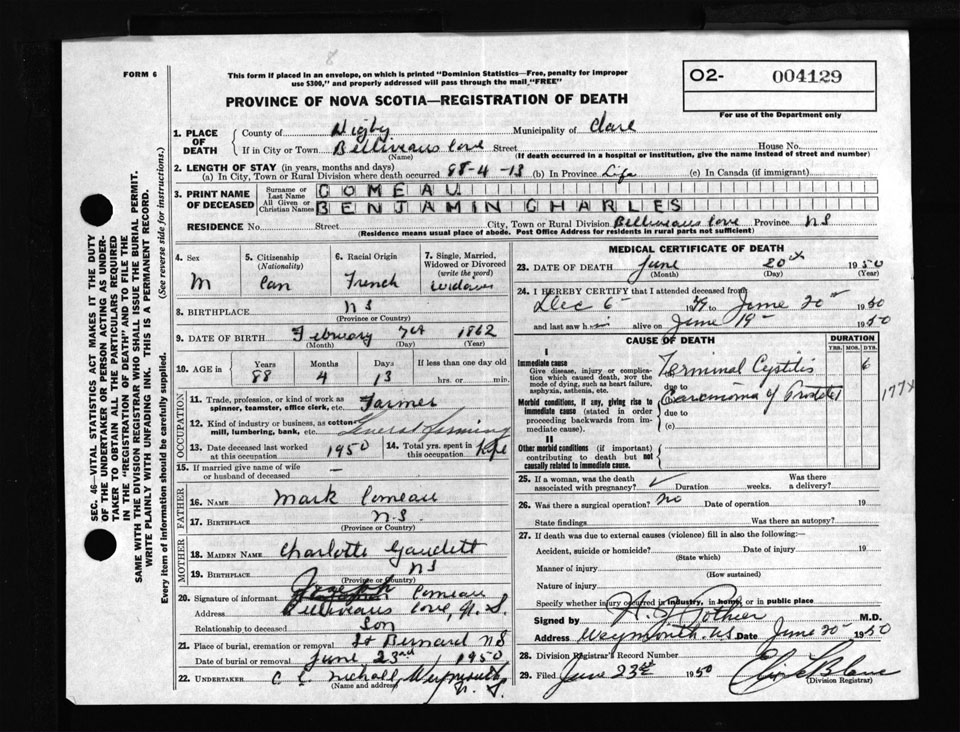 8
FORM 6
This form if placed in an envelope, on which is printed "Dominion Statistics—Free, penalty for improper
use $300," and properly addressed will pass through the mail "FREE"
O2- 004129
For use of the Department only
PROVINCE OF NOVA SCOTIA—REGISTRATION OF DEATH
SEC. 46—VITAL STATISTICS ACT MAKES IT THE DUTY
OF THE UNDERTAKER OR PERSON ACTING AS UNDER-
TAKER TO OBTAIN ALL THE PARTICULARS REQUIRED
IN THE "REGISTRATION OF DEATH" AND TO FILE THE
SAME WITH THE DIVISION REGISTRAR WHO SHALL ISSUE THE BURIAL PERMIT.
WRITE PLAINLY WITH UNFADING INK. THIS IS A PERMANENT RECORD.
(See reverse side for instructions.)
Every item of information should be carefully supplied.
1. PLACE OF DEATH
County of Digby Municipality of Clare
If in City or Town Belliveaus Cove Street House No.
(Name) (If death occurred in a hospital or institution, give the name instead of street and number)
2. LENGTH OF STAY (in years, months and days)
(a) In City, Town or Rural Division where death occurred 88-4-13 (b) In Province Life (c) In Canada (if immigrant)
3. PRINT NAME OF DECEASED
Surname or Last Name COMEAU
All Given or Christian Names BENJAMIN CHARLES
RESIDENCE No. Street City, Town or Rural Division Belliveaus Cove Province NS
(Residence means usual place of abode. Post Office Address for residents in rural parts not sufficient)
4. Sex
M
5. Citizenship (Nationality)
Can
6. Racial Origin
French
7. Single, Married, Widowed or Divorced (write the word)
widower
8. BIRTHPLACE NS
(Province or Country)
9. DATE OF BIRTH February 7th 1862
(Month) (Day) (Year)
10. AGE Years Months Days If less than one day old
88 4 13 hrs. or min.
OCCUPATION
11. Trade, profession, or kind of work as
spinner, teamster, office clerk, etc. Farmer
12. Kind of industry or business, as cotton
mill, lumbering, bank, etc. General Farming
13. Date deceased last worked
at this occupation 1950
14. Total yrs. spent in
this occupation Life
15. If married give name of wife
or husband of deceased —
FATHER
16. NAME Mark Comeau
17. BIRTHPLACE N.S.
(Province or Country)
MOTHER
18. MAIDEN NAME Charlotte Gaudett
19. BIRTHPLACE NS
(Province or Country)
20. Signature of informant Joseph Comeau
Address Belliveaus Cove, N.S.
Relationship to deceased Son
21. Place of burial, cremation or removal St Bernard NS
Date of burial or removal June 23rd 1950
22. UNDERTAKER C L Weymouth N.S.
(Name and address)
MEDICAL CERTIFICATE OF DEATH
23. DATE OF DEATH June 20th 1950
(Month) (Day) (Year)
24. I HEREBY CERTIFY that I attended deceased from
Dec 6 1949 to June 20 1950
and last saw him alive on June 19 1950
CAUSE OF DEATH DURATION
YRS. MOS. DYS.
I
Immediate cause
Give disease, injury or complica-
tion which caused death, NOT the
mode of dying, such as heart failure,
asphyxia, asthenia, etc.
Terminal Cystitis 6
due to
Morbid conditions, if any, giving rise to
immediate cause (stated in order
proceeding backwards from im-
mediate cause).
Carcinoma of Prostate
due to
(c)
177X
II
Other morbid conditions (if important)
contributing to death but not
causally related to immediate cause.
25. If a woman, was the death
associated with pregnancy? Duration weeks. Was there a delivery?
26. Was there a surgical operation? no Date of operation 19
State findings Was there an autopsy?
27. If death was due to external causes (violence) fill in also the following:—
Accident, suicide or homicide? Date of injury 19
(State which)
Manner of injury
(How sustained)
Nature of injury
Specify whether injury occurred in industry, in home, or in public place
Signed by Pothier M.D.
Address Weymouth N.S. Date June 20 1950
28. Division Registrar's Record Number
29. Filed June 23rd 1950
(Division Registrar)